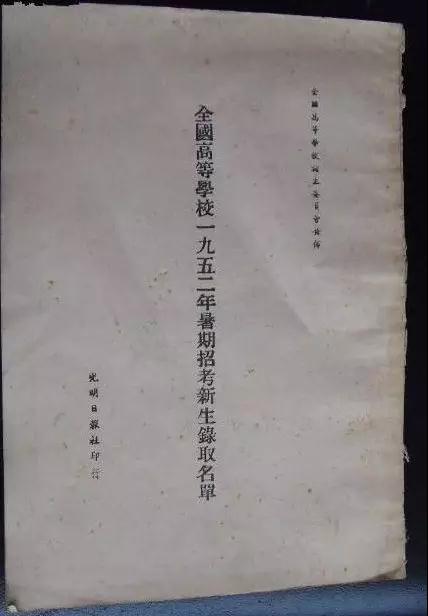 全國高等學校招生委員會發佈
全國高等學校一九五二年暑期招考新生錄取名單
光明日報社印行